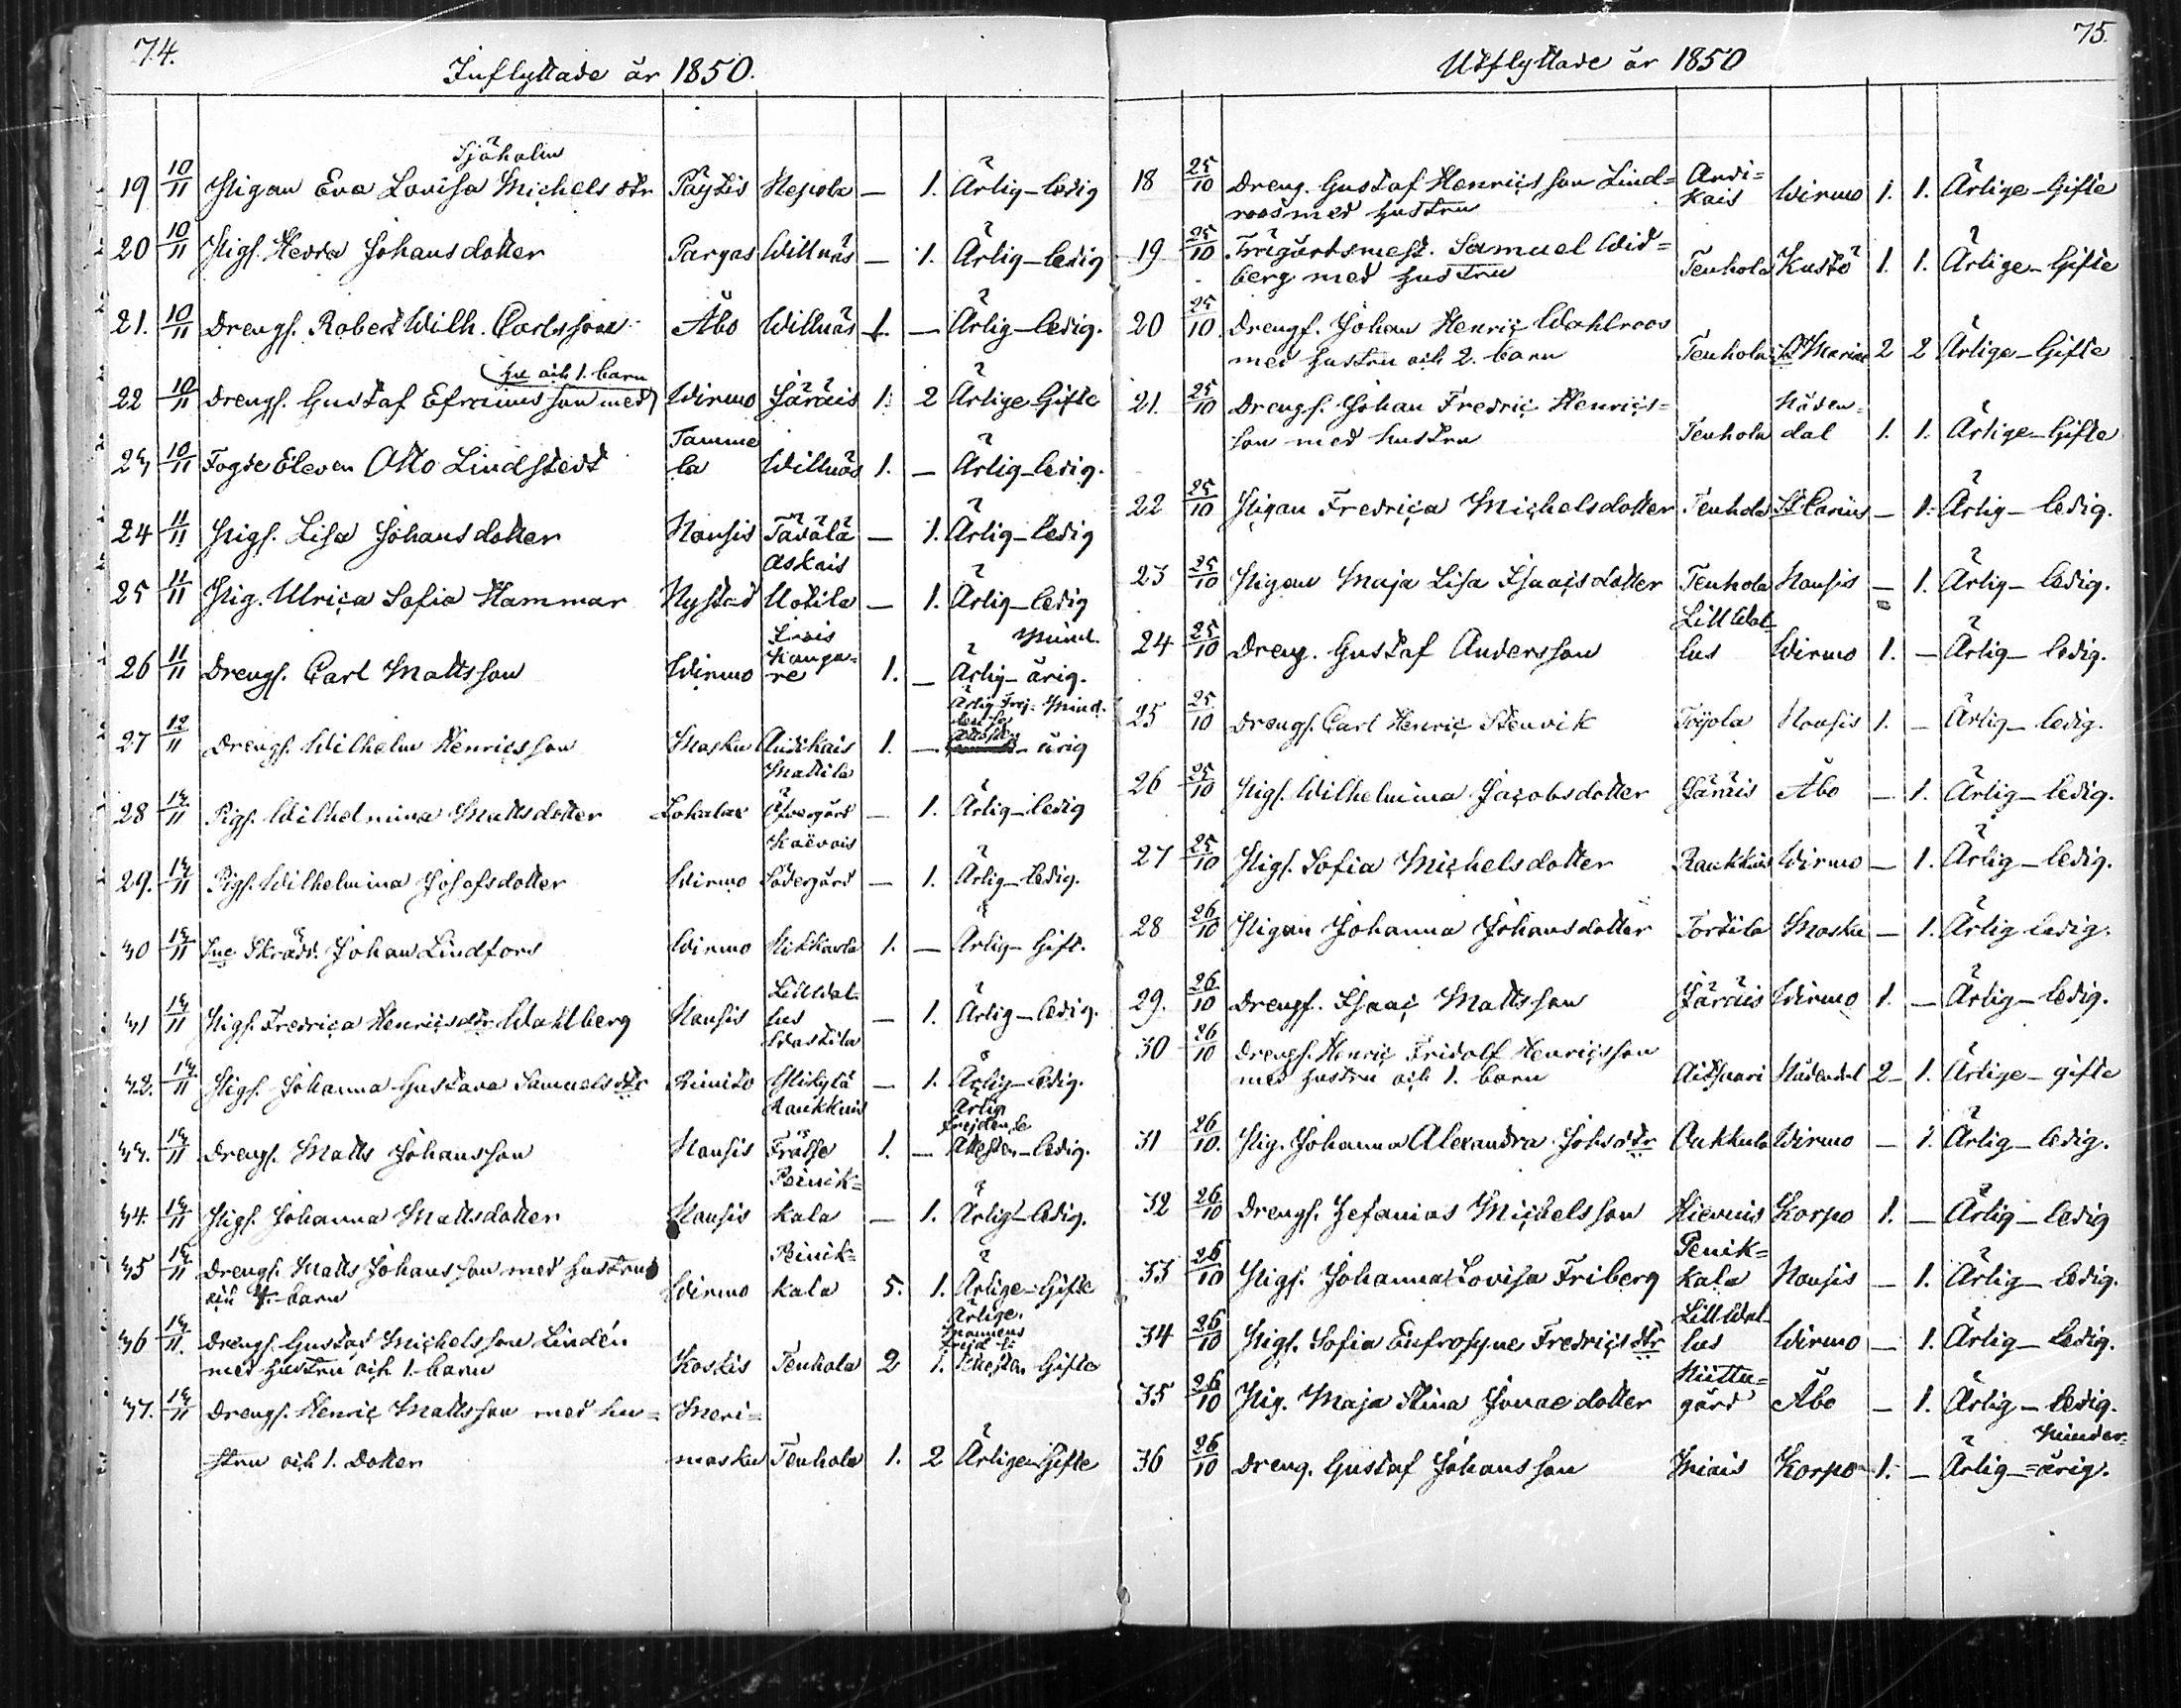 74.
Inflyttade år 1850.
Sjöholm
19 10/11 Pigan Eva Lovisa Michels dtr Pöytis Nepola — 1. Ärlig - ledig
20 10/11 Pigs. Hedda Johansdotter Pargas Willnäs — 1. Ärlig - ledig
21. 10/11 Drengs. Robert Wilh. Carlsson Åbo Willnäs 1. — Ärlig - ledig.
hu och 1. barn
22 10/11 Drengs. Gustaf Efraimsson med Wirmo Järäis 1. 2 Ärlige Gifte
Tamme
23 10/11 Fogde Eleven Otto Lindstedt la Willnäs 1. — Ärlig - ledig.
24 11/11 Pigs. Lisa Johansdotter Nousis Tavälä — 1. Ärlig - ledig
Askais
25 11/11 Pig. Ulrica Sofia Hammar Nystad Uotila — 1. Ärlig - ledig
Mind.
Kanga=
26 11/11 Drengs. Carl Mattsson Wirmo re 1. — Ärlig - årig.
Ärlig Frej= Mind.
27 12/11 Drengs. Wilhelm Henricsson Masku Andikais 1. — årig
Mattila
28 13/11 Pigs. Wilhelmina Mattsdotter Lokalax Öfvergård — 1. Ärlig - ledig
Kaëvois
29. 13/11 Pigs. Wilhelmina Josefsdotter Wirmo Södergård — 1. Ärlig - ledig.
30 13/11 Skrädd. Johan Lindfors Wirmo Nikkarla 1. — Ärlig - Gift.
Lill Wal-
31 13/11 Pigs. Fredrica Henricsdtr Wahlberg Nousis lus — 1. Ärlig - ledig.
Wastila
32. 13/11 Pigs. Johanna Gustava Samuels dtr Rimito Mikylä — 1. Ärlig - ledig.
Raukkuis Ärlig
frejden se
33. 13/11 Drengs. Matts Johansson Nousis Frälse 1. — Attesten - ledig.
Peinik=
34. 13/11 Pigs. Johanna Mattsdotter Nousis kala — 1. Ärlig - ledig.
Peinik=
35 13/11 Drengs. Matts Johansson med hustru
och 4. barn Wirmo kala 5. 1. Ärlige - Gifte
Ärlige.
Mannens
36 13/11. Drengs. Gustaf Michelsson Lindén
med hustru och 1. barn Koskis Tenhola 2 1. Attesten Gifte
37. 13/11 Drengs. Henric Mattsson med hu= Meri=
stru och 1. Dotter masku Tenhola 1. 2 Ärlige Gifte
75.
Utflyttade år 1850
18 25/10 Dreng. Gustaf Henricsson Lind= Andi=
roos med hustru kais Wirmo 1. 1. Ärlige - Gifte
19 25/10 Trägårdsmest. Samuel Wid=
berg med hustru Tenhola Kustö 1. 1. Ärlige - Gifte
20 25/10 Drengs. Johan Henric Wahlroos
med hustru och 2. barn Tenhola St Marie 2 2 Ärlige - Gifte
21. 25/10 Drengs. Johan Fredric Henrics= Nåden=
son med hustru Tenhola dal 1. 1. Ärlige - Gifte
22 25/10 Pigan Fredrica Michelsdotter Tenhola St Carins — 1. Ärlig - ledig.
23 25/10 Pigan Maja Lisa Isaacsdotter Tenhola Nousis — 1. Ärlig - ledig.
Lill Wal-
24 25/10 Dreng. Gustaf Andersson lus Wirmo 1. — Ärlig - ledig.
25 25/10 Drengs. Carl Henric Stenvik Tojola Nousis 1. — Ärlig - ledig.
26 25/10 Pigs. Wilhelmina Jacobsdotter Järäis Åbo — 1. Ärlig - ledig.
27 25/10 Pigs. Sofia Michelsdotter Raukkuis Wirmo — 1. Ärlig - ledig.
28 26/10 Pigan Johanna Johansdotter Tortila Masku — 1. Ärlig ledig.
29. 26/10 Drengs. Isaac Mattsson Järäis Wirmo 1. — Ärlig - ledig.
30 26/10 Drengs. Henric Fridolf Henricsson
med hustru och 1. barn Aitsaari Nådendal 2 1. Ärlige - gifte
31 26/10. Pig. Johanna Alexandra Johs dtr Aukkula Wirmo — 1. Ärlig - ledig.
32 26/10 Drengs. Zefanias Michelsson Hiervis Korpo 1. — Ärlig - ledig
Penik=
33 26/10 Pigs. Johanna Lovisa Friberg kala Nousis — 1. Ärlig - ledig.
Lill Wal-
34 26/10 Pigs. Sofia Eufrosyne Fredrics dtr lus Wirmo — 1. Ärlig - ledig.
35 26/10 Pig. Maja Stina Jonaedotter gård Åbo — 1. Ärlig - ledig.
Minder=
36 26/10 Dreng. Gustaf Johansson Iniais Korpo 1. — Ärlig - årig.